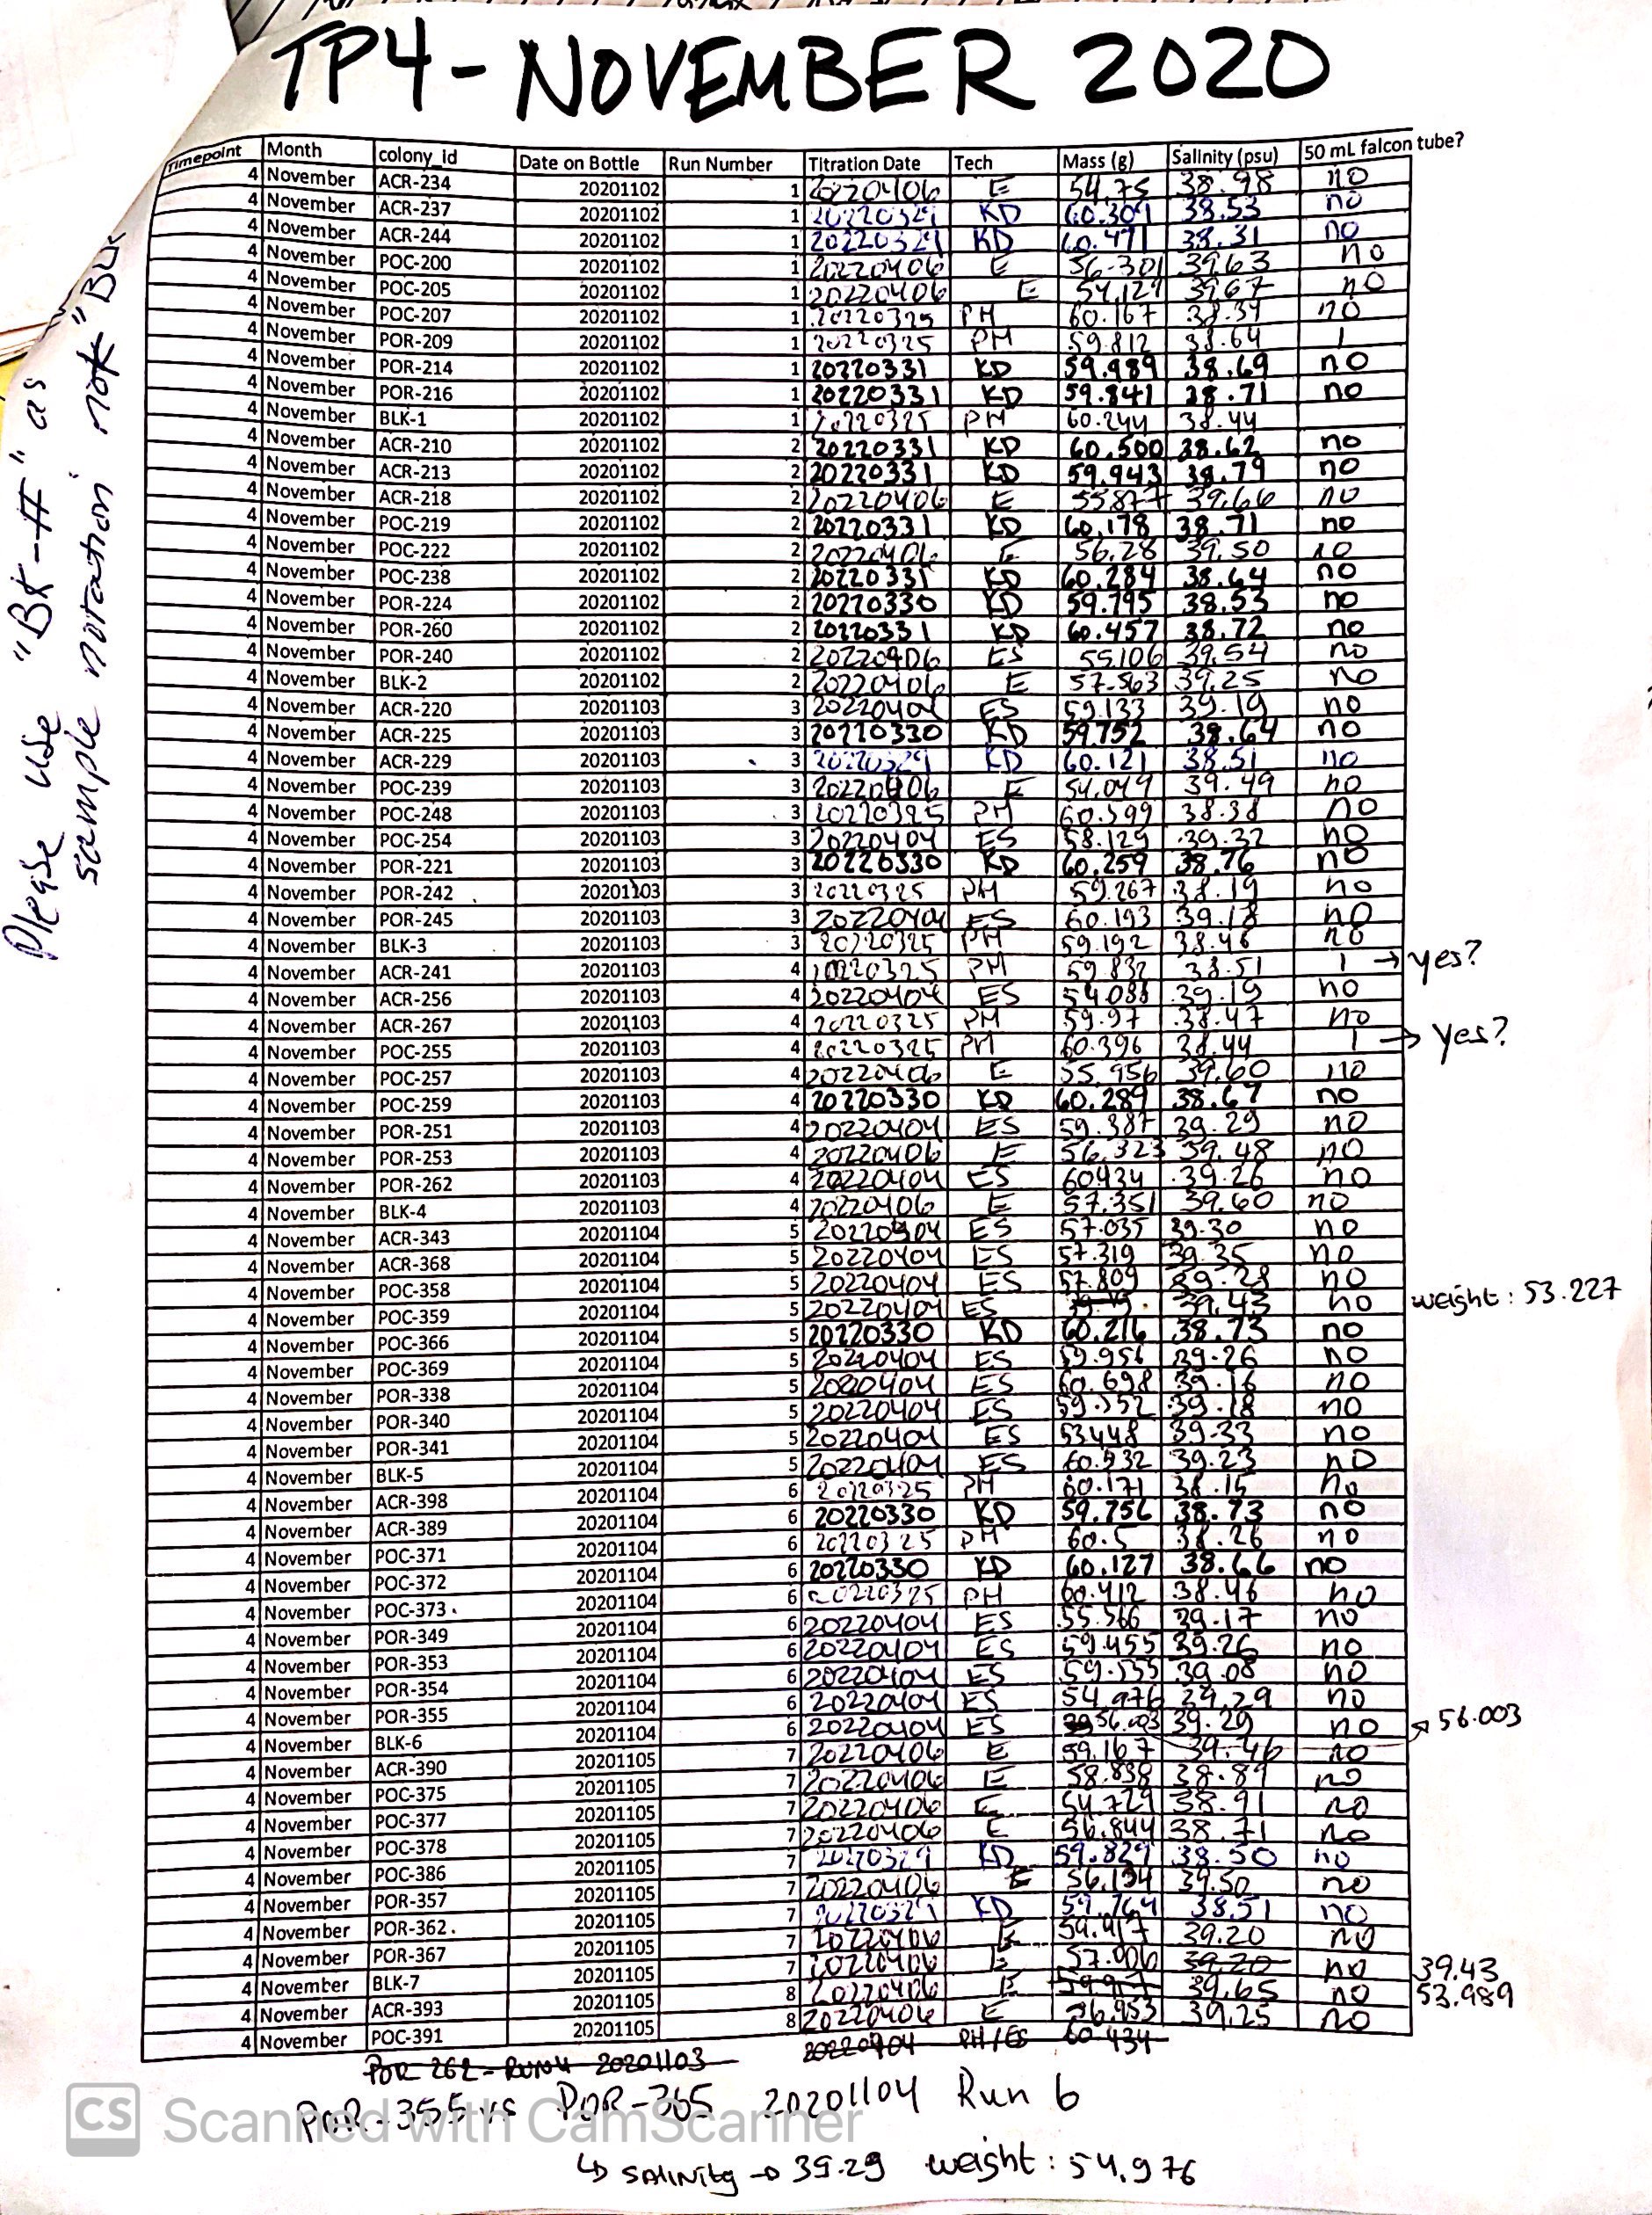 TP4 - NOVEMBER 2020
Timepoint Month colony_id Date on Bottle Run Number Titration Date Tech Mass (g) Salinity (psu) 50 mL falcon tube?
4 November ACR-234 20201102 1 20220406 E 54.75 38.98 no
4 November ACR-237 20201102 1 20220329 KD 60.309 38.53 no
4 November ACR-244 20201102 1 20220329 KD 60.471 38.31 no
4 November POC-200 20201102 1 20220406 E 56.301 39.63 no
4 November POC-205 20201102 1 20220406 E 54.129 39.67 no
4 November POC-207 20201102 1 20220325 PM 60.167 38.39 no
4 November POR-209 20201102 1 20220325 PM 59.812 38.64 1
4 November POR-214 20201102 1 20220331 KD 59.989 38.69 no
4 November POR-216 20201102 1 20220331 KD 59.841 38.71 no
4 November BLK-1 20201102 1 20220325 PM 60.244 38.44
4 November ACR-210 20201102 2 20220331 KD 60.500 38.62 no
4 November ACR-213 20201102 2 20220331 KD 59.943 38.79 no
4 November ACR-218 20201102 2 20220406 E 55.877 39.66 no
4 November POC-219 20201102 2 20220331 KD 60.178 38.71 no
4 November POC-222 20201102 2 20220406 E 56.28 39.50 no
4 November POC-238 20201102 2 20220331 KD 60.284 38.64 no
4 November POR-224 20201102 2 20220330 KD 59.795 38.53 no
4 November POR-260 20201102 2 20220331 KD 60.457 38.72 no
4 November POR-240 20201102 2 20220406 ES 55.106 39.54 no
4 November BLK-2 20201102 2 20220406 E 57.563 39.25 no
4 November ACR-220 20201103 3 20220404 ES 59.133 39.19 no
4 November ACR-225 20201103 3 20220330 KD 59.752 38.64 no
4 November ACR-229 20201103 3 20220329 KD 60.121 38.51 no
4 November POC-239 20201103 3 20220406 E 54.049 39.49 no
4 November POC-248 20201103 3 20220325 PM 60.599 38.38 no
4 November POC-254 20201103 3 20220404 ES 58.129 39.32 no
4 November POR-221 20201103 3 20220330 KD 60.259 38.76 no
4 November POR-242 20201103 3 20220325 PM 59.267 38.19 no
4 November POR-245 20201103 3 20220404 ES 60.193 39.18 no
4 November BLK-3 20201103 3 20220325 PM 59.192 38.46 no
4 November ACR-241 20201103 4 20220325 PM 59.832 38.51 1 → yes?
4 November ACR-256 20201103 4 20220404 ES 54.088 39.19 no
4 November ACR-267 20201103 4 20220325 PM 59.97 38.47 no
4 November POC-255 20201103 4 20220325 PM 60.396 38.44 1 → yes?
4 November POC-257 20201103 4 20220406 E 55.956 39.60 no
4 November POC-259 20201103 4 20220330 KD 60.289 38.67 no
4 November POR-251 20201103 4 20220404 ES 59.387 39.29 no
4 November POR-253 20201103 4 20220406 E 56.323 39.48 no
4 November POR-262 20201103 4 20220404 ES 60434 39.26 no
4 November BLK-4 20201103 4 20220406 E 57.351 39.60 no
4 November ACR-343 20201104 5 20220404 ES 57.035 39.30 no
4 November ACR-368 20201104 5 20220404 ES 57.319 39.35 no
4 November POC-358 20201104 5 20220404 ES 57.809 39.28 no
4 November POC-359 20201104 5 20220404 ES 39.43 no weight: 53.227
4 November POC-366 20201104 5 20220330 KD 60.216 38.73 no
4 November POC-369 20201104 5 20220404 ES 59.956 39.26 no
4 November POR-338 20201104 5 2020404 ES 60.698 39.16 no
4 November POR-340 20201104 5 20220404 ES 59.552 39.18 no
4 November POR-341 20201104 5 20220404 ES 53448 39.33 no
4 November BLK-5 20201104 5 20220404 ES 60.532 39.23 no
4 November ACR-398 20201104 6 20220325 PM 60.171 38.15 no
4 November ACR-389 20201104 6 20220330 KD 59.756 38.73 no
4 November POC-371 20201104 6 20220325 PM 60.5 38.26 no
4 November POC-372 20201104 6 20220330 KD 60.127 38.66 no
4 November POC-373 20201104 6 20220325 PM 60.412 38.46 no
4 November POR-349 20201104 6 20220404 ES 55.566 39.17 no
4 November POR-353 20201104 6 20220404 ES 59.455 39.26 no
4 November POR-354 20201104 6 20220404 ES 59.535 39.08 no
4 November POR-355 20201104 6 20220404 ES 54.976 39.29 no
4 November BLK-6 20201104 6 20220404 ES 56.003 39.29 no → 56.003
4 November ACR-390 20201105 7 20220406 E 59.167 39.46 no
4 November POC-375 20201105 7 20220406 E 58.838 38.89 no
4 November POC-377 20201105 7 20220406 E 54.729 38.91 no
4 November POC-378 20201105 7 20220406 E 56.844 38.71 no
4 November POC-386 20201105 7 20220329 KD 59.829 38.50 no
4 November POR-357 20201105 7 20220406 E 56.134 39.50 no
4 November POR-362 20201105 7 20220329 KD 59.764 38.51 no
4 November POR-367 20201105 7 20220406 E 59.917 39.20 no
4 November BLK-7 20201105 7 20220406 E 57.006 39.20 no 39.43
4 November ACR-393 20201105 8 20220406 E 39.65 no 53.989
4 November POC-391 20201105 8 20220406 E 56.953 39.25 no
POR 262 - RUN4 20201103 20220404 PM/ES 60.434
POR-355 vs POR-365 20201104 Run 6
↳ salinity → 39.29 weight: 54.976
Please use "BK-#" as
sample notation not "BLK
CS Scanned with CamScanner